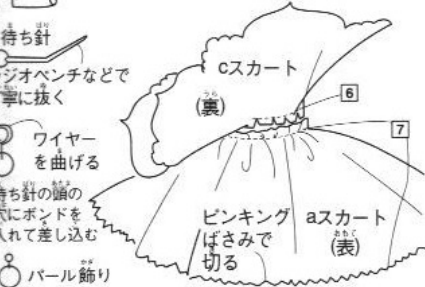 待ち針
ジオペンチなどで
寧に抜く
ワイヤー
を曲げる
待ち針の頭の
穴にボンドを
入れて差し込む
パール飾り
cスカート
(裏)
6
7
ピンキング
ばさみで
切る
aスカート
(表)